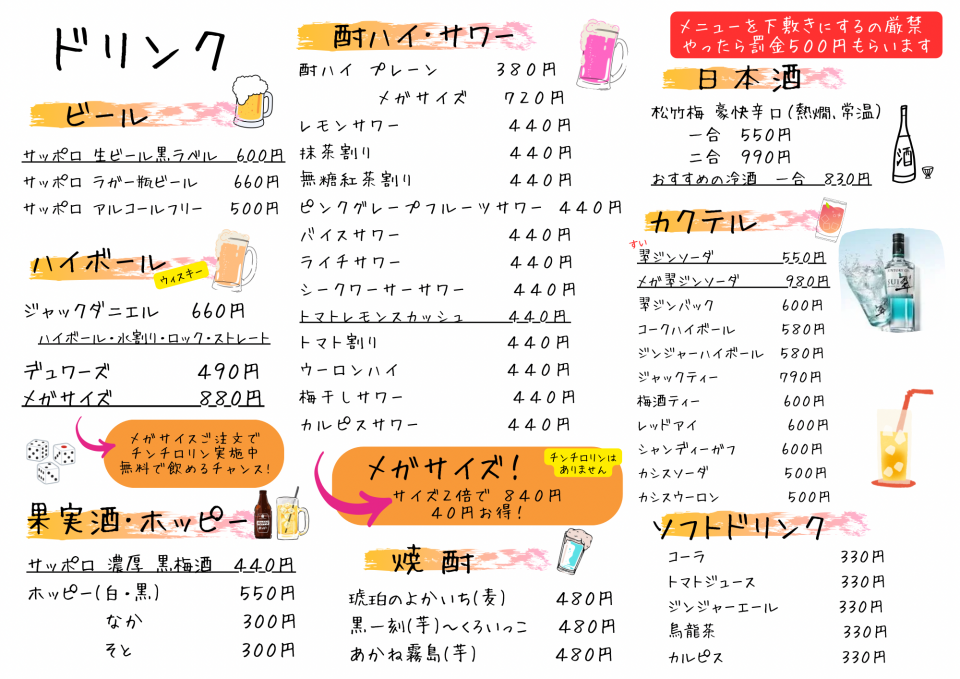 ドリンク
ビール
サッポロ 生ビール黒ラベル 600円
サッポロ ラガー瓶ビール 660円
サッポロ アルコールフリー 500円
ハイボール
ウィスキー
ジャックダニエル 660円
ハイボール・水割り・ロック・ストレート
デュワーズ 490円
メガサイズ 880円
メガサイズご注文で
チンチロリン実施中
無料で飲めるチャンス!
果実酒・ホッピー
サッポロ 濃厚 黒梅酒 440円
ホッピー(白・黒) 550円
なか 300円
そと 300円
酎ハイ・サワー
酎ハイ プレーン 380円
メガサイズ 720円
レモンサワー 440円
抹茶割り 440円
無糖紅茶割り 440円
ピンクグレープフルーツサワー 440円
バイスサワー 440円
ライチサワー 440円
シークワーサーサワー 440円
トマトレモンスカッシュ 440円
トマト割り 440円
ウーロンハイ 440円
梅干しサワー 440円
カルピスサワー 440円
メガサイズ!
チンチロリンは
ありません
サイズ2倍で 840円
40円お得!
焼酎
琥珀のよかいち(麦) 480円
黒一刻(芋)〜くろいっこ 480円
あかね霧島(芋) 480円
メニューを下敷きにするの厳禁
やったら罰金500円もらいます
日本酒
松竹梅 豪快辛口(熱燗、常温)
一合 550円
二合 990円
おすすめの冷酒 一合 830円
酒
カクテル
すい
翠ジンソーダ 550円
メガ翠ジンソーダ 980円
翠ジンバック 600円
コークハイボール 580円
ジンジャーハイボール 580円
ジャックティー 790円
梅酒ティー 600円
レッドアイ 600円
シャンディーガフ 600円
カシスソーダ 500円
カシスウーロン 500円
翠
ソフトドリンク
コーラ 330円
トマトジュース 330円
ジンジャーエール 330円
烏龍茶 330円
カルピス 330円